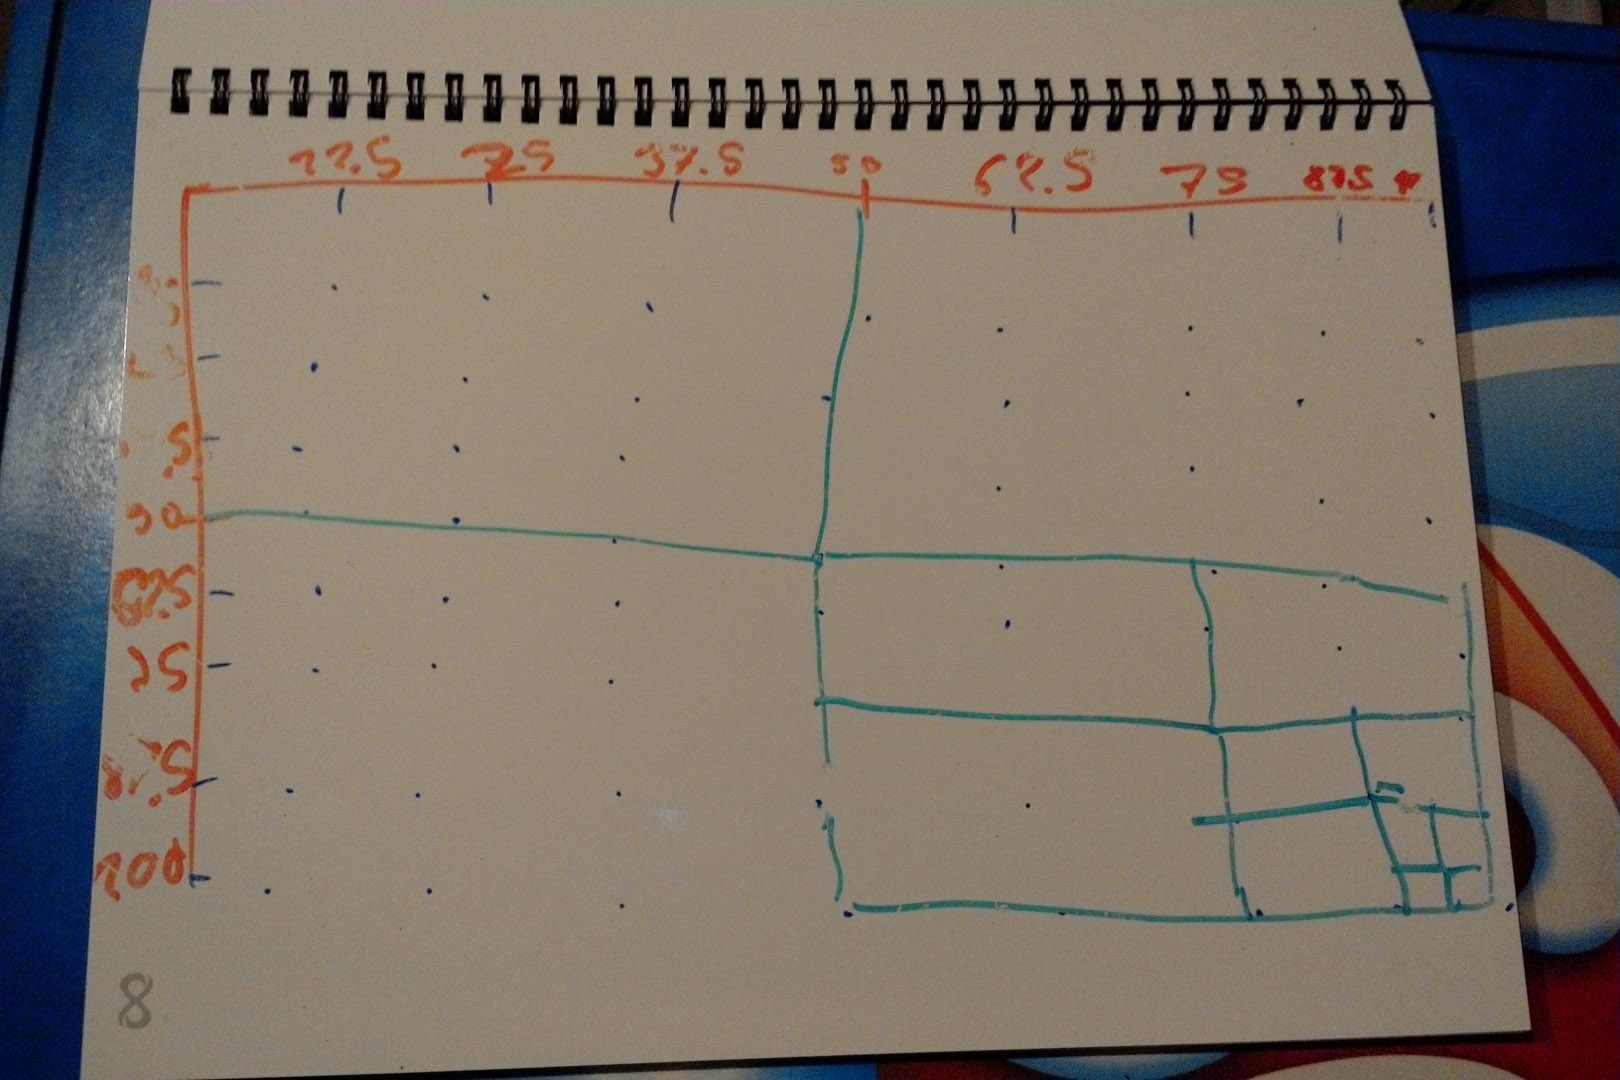 12.5 25 37.5 50 62.5 75 87.5
.5
50
62.5
75
87.5
100
8